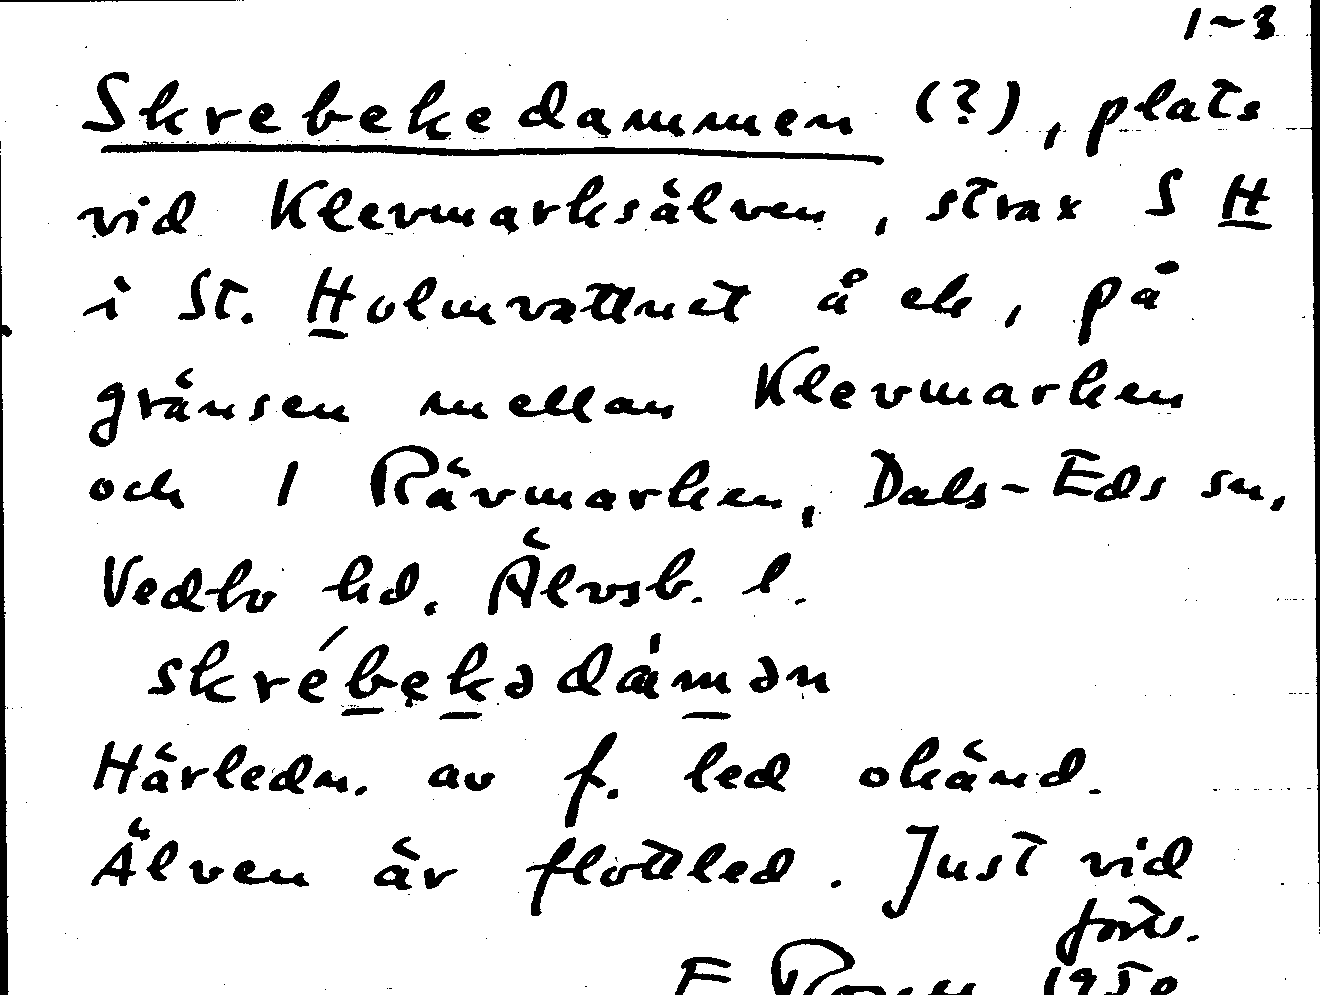 1~3
Skrebekedammen (?), plats
vid Klevmarksälven, strax S H
i St. Holmvattnet å ek, på
gränsen mellan Klevmarken
och 1 Rävmarken, Dals-Eds sn,
Vedbo hd. Älvsb. l.
skrébekədàmən
Härledn. av f. led okänd.
Älven är flottled. Just vid
forts.
F 1950